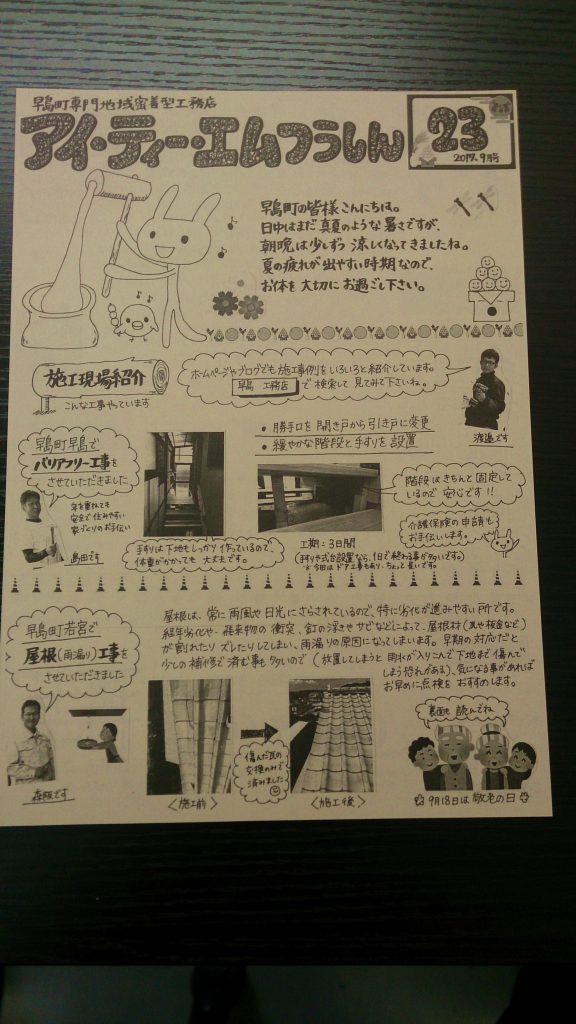 早島町専門地域密着型工務店
アイ・ティー・エムつうしん
23
2017.9月号
早島町の皆様こんにちは。
日中はまだ真夏のような暑さですが、
朝晩は少しずつ涼しくなってきましたね。
夏の疲れが出やすい時期なので、
お体を大切にお過ごし下さい。
施工現場紹介
こんな工事やっています
ホームページやブログでも施工事例をいろいろと紹介しています。
早島 工務店 で検索して見てみて下さいね。
渡邉です
早島町早島で
バリアフリー工事を
させていただきました
年を重ねても
安全で住みやすい
家づくりのお手伝い
島田です
・勝手口を開き戸から引き戸に変更
・緩やかな階段と手すりを設置
手すりは下地もしっかり作っているので、
体重がかかっても大丈夫です。
階段はきちんと固定して
いるので安心です!!
介護保険の申請も
お手伝いします。
工期:3日間
(手すりや式台設置なら、1日で終わる事が多いです。
※今回はドア工事もあり、ちょっと長いです。)
早島町若宮で
屋根(雨漏り)工事を
させていただきました
森阪です
屋根は、常に雨風や日光にさらされているので、特に劣化が進みやすい所です。
経年劣化や飛来物の衝突、釘の浮きやサビなどによって、屋根材(瓦や板金など)
が割れたりズレたりしてしまい、雨漏りの原因になってしまいます。早期の対応だと
少しの補修で済む事も多いので(放置してしまうと雨水が入りこんで下地まで傷んで
しまう恐れがある)、気になる事があれば
お早めに点検をおすすめします。
傷んだ瓦の
交換のみで
済みました
<施工前>
<施工後>
裏面も読んでね
9月18日は敬老の日